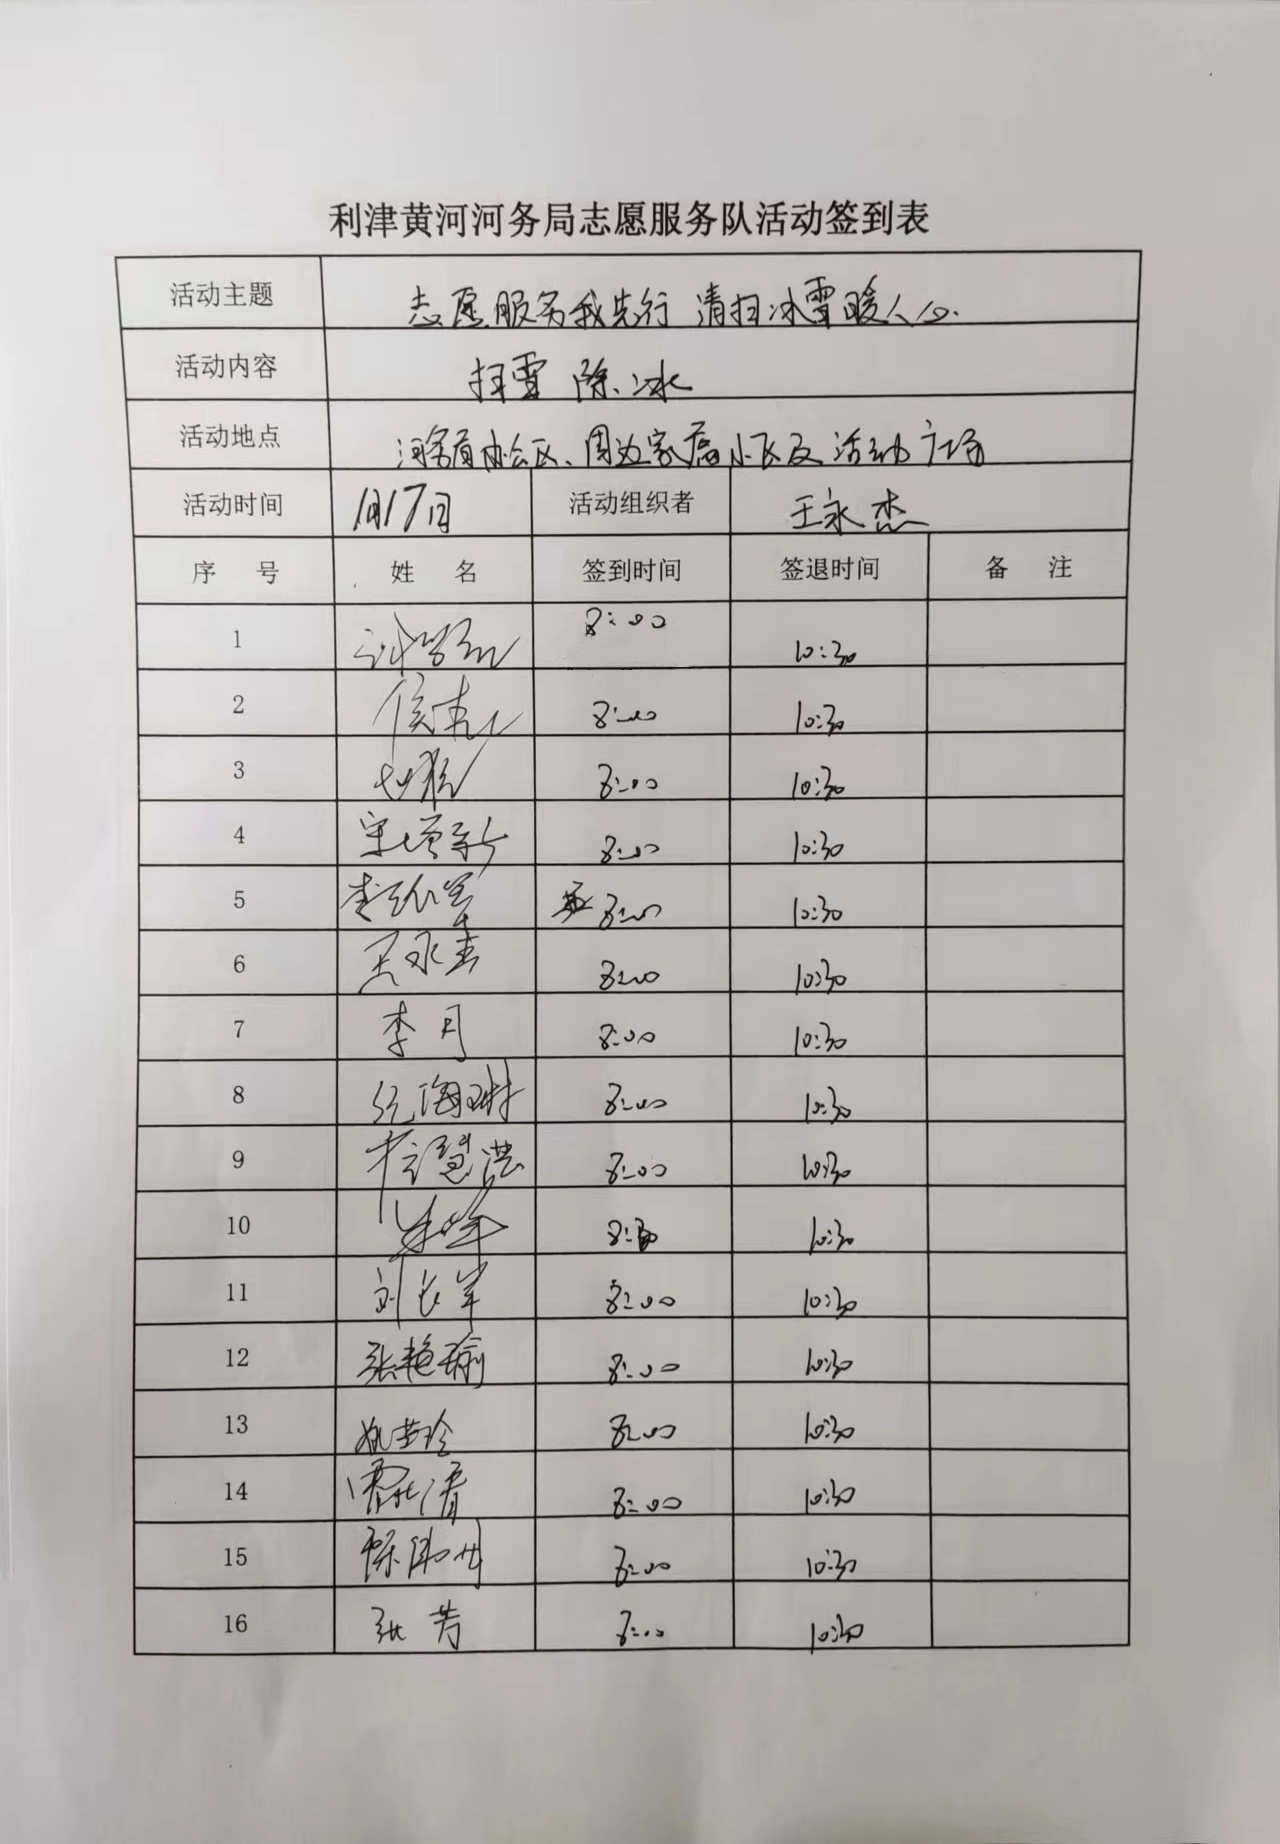 利津黄河河务局志愿服务队活动签到表
活动主题 志愿服务我先行 清扫冰雪暖人心.
活动内容 扫雪 除冰
活动地点 河务局办公区、周边家属小区及活动广场
活动时间 1月17日 活动组织者 王永杰
序号 姓名 签到时间 签退时间 备注
1 8:00 10:30
2 8:00 10:30
3 8:00 10:30
4 宋增新 8:00 10:30
5 8:00 10:30
6 王永杰 8:00 10:30
7 李月 8:00 10:30
8 8:00 10:30
9 8:00 10:30
10 10:30
11 刘长军 8:00 10:30
12 张艳瑜 8:00 10:30
13 8:00 10:30
14 8:00 10:30
15 8:00 10:30
16 张芳 8:00 10:30